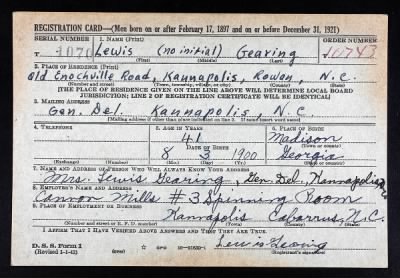 REGISTRATION CARD—(Men born on or after February 17, 1897 and on or before December 31, 1921)
SERIAL NUMBER 1. NAME (Print) ORDER NUMBER
T 1070 Lewis (no initial) Gearing 10743
(First) (Middle) (Last)
2. PLACE OF RESIDENCE (Print)
Old Enochville Road, Kannapolis, Rowan, N.C.
(Number and street) (Town, township, village, or city) (County) (State)
[THE PLACE OF RESIDENCE GIVEN ON THE LINE ABOVE WILL DETERMINE LOCAL BOARD
JURISDICTION; LINE 2 OF REGISTRATION CERTIFICATE WILL BE IDENTICAL]
3. MAILING ADDRESS
Gen. Del. Kannapolis, N.C.
[Mailing address if other than place indicated on line 2. If same insert word same]
4. TELEPHONE 5. AGE IN YEARS 6. PLACE OF BIRTH
41 Madison
DATE OF BIRTH (Town or county)
8 3 1900 Georgia
(Exchange) (Number) (Mo.) (Day) (Yr.) (State or country)
7. NAME AND ADDRESS OF PERSON WHO WILL ALWAYS KNOW YOUR ADDRESS
Mrs. Lewis Gearing, Gen Del. Kannapolis
8. EMPLOYER'S NAME AND ADDRESS
Cannon Mills #3 Spinning Room
9. PLACE OF EMPLOYMENT OR BUSINESS
Kannapolis Cabarrus, N.C.
(Number and street or R. F. D. number) (Town) (County) (State)
I AFFIRM THAT I HAVE VERIFIED ABOVE ANSWERS AND THAT THEY ARE TRUE.
D. S. S. Form 1
(Revised 1-1-42) (over) GPO Lewis Gearing
(Registrant's signature)